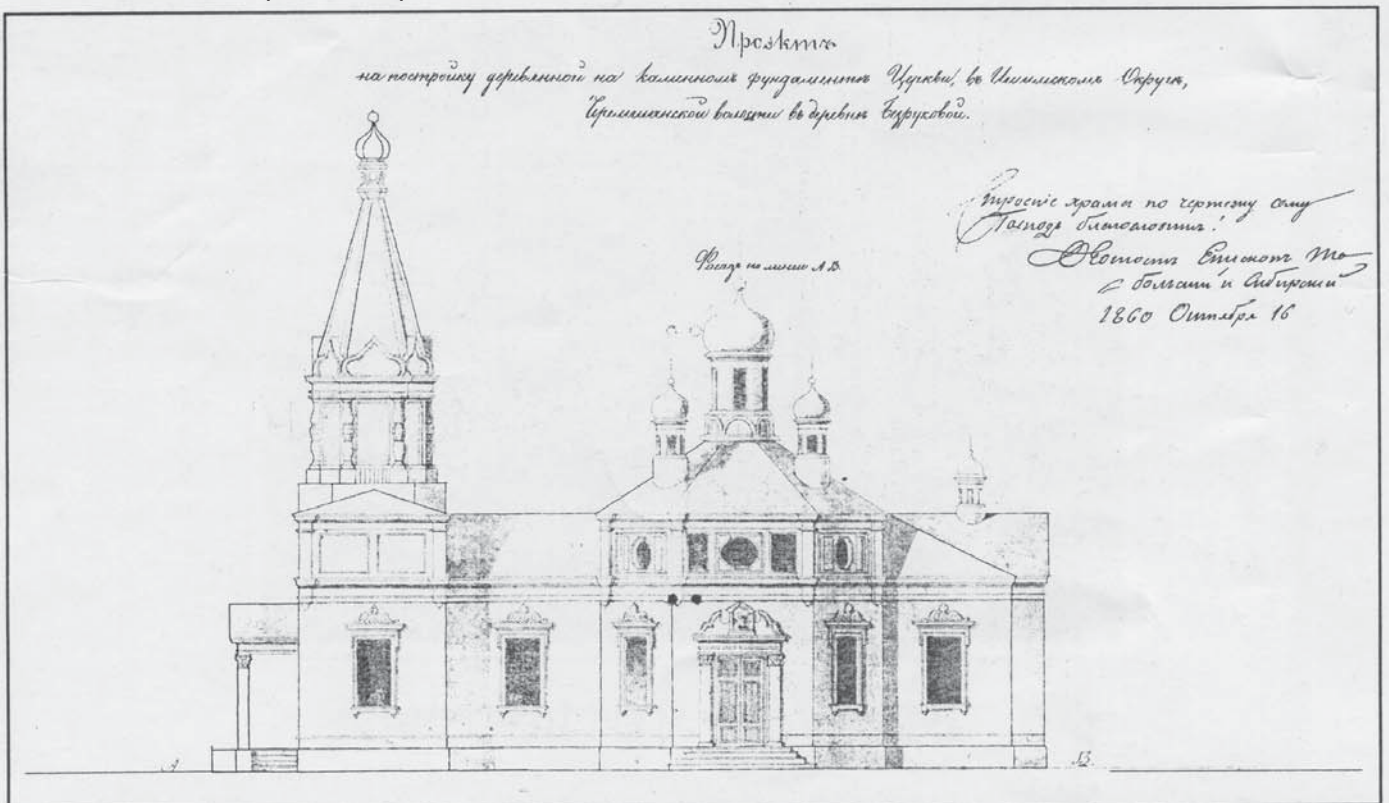 Проэктъ
на постройку деревянной на каменномъ фундаментѣ Церкви, въ Ишимскомъ Округѣ,
Черемшанской волости въ деревнѣ Безруковой.
храма по чертежу сему
Господь благословитъ!
Ѳеогностъ Епископъ То-
больский и Сибирский
1860 Октября 16
Фасадъ по линіи А.В.
А
В.